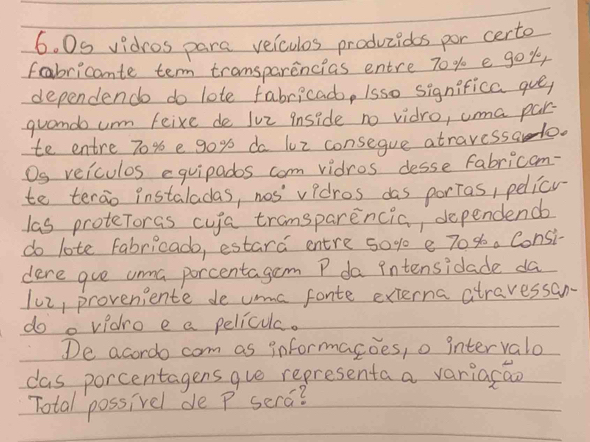 6. Os vidros para veículos produzidos por certo
fabricante tem transparências entre 70% e 90%,
dependendo do lote fabricado. Isso significa que,
quando um feixe de luz inside no vidro, uma par-
te entre 70% e 90% da luz consegue atravessa-lo.
Os veículos equipados com vidros desse fabrican-
te terão instaladas, nos vidros das portas, pelícu-
las protetoras cuja transparência, dependendo
do lote fabricado, estará entre 50% e 70%. Consi-
dere que uma porcentagem P da intensidade da
luz, proveniente de uma fonte externa atravessan-
do o vidro e a película.
De acordo com as informações, o intervalo
das porcentagens que representa a variação
Total possível de P será?